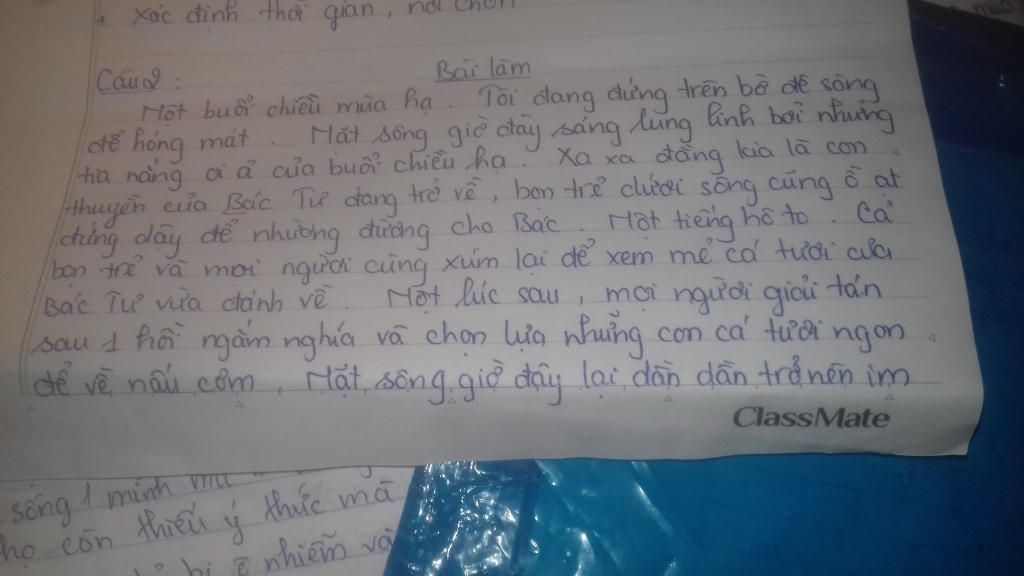 + Xác định thời gian, nơi chốn
Câu 2 :
Bài làm
Một buổi chiều mùa hạ. Tôi đang đứng trên bờ đê sông
để hóng mát. Mặt sông giờ đây sáng lung linh bởi những
tia nắng oi ả của buổi chiều hạ. Xa xa đằng kia là con
thuyền của Bác Tư đang trở về, bọn trẻ dưới sông cũng ồ ạt
đứng dậy để nhường đường cho Bác. Một tiếng hô to. Cả
bọn trẻ và mọi người cùng xúm lại để xem mẻ cá tươi của
Bác Tư vừa đánh về. Một lúc sau, mọi người giải tán
sau 1 hồi ngắm nghía và chọn lựa những con cá tươi ngon
để về nấu cơm, Mặt sông giờ đây lại dần dần trở nên im
ClassMate
sống 1 mình
họ còn thiếu ý thức mà
bị ô nhiễm và